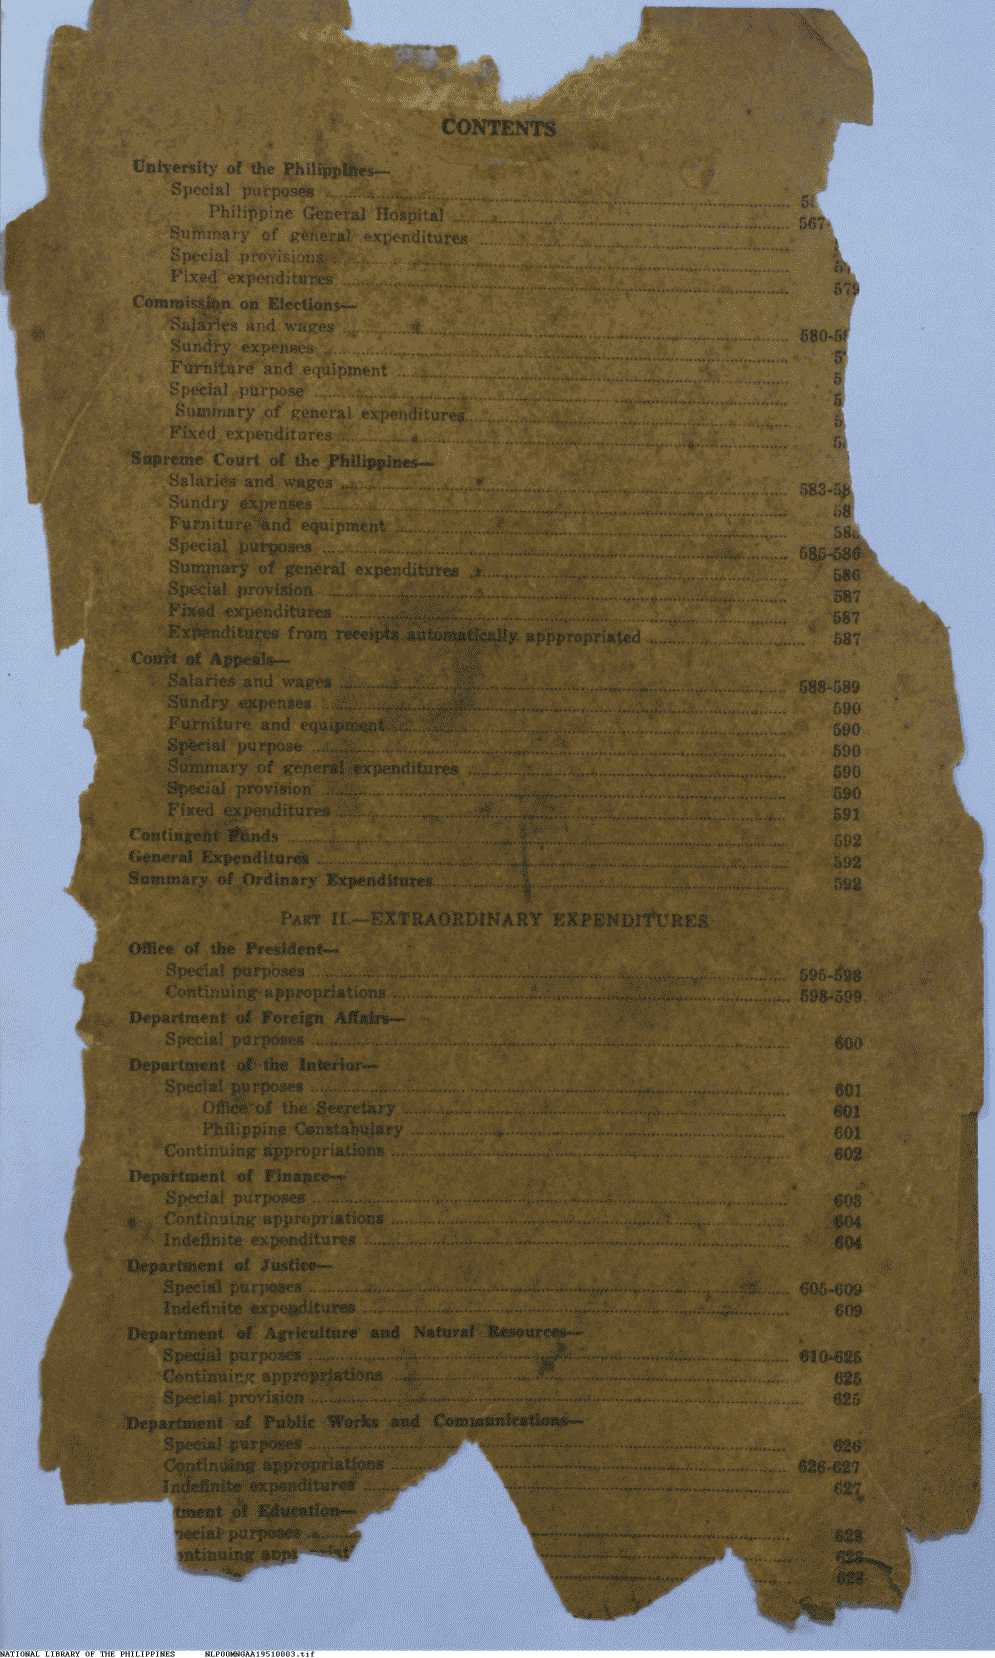 CONTENTS
University of the Philippines—
Special purposes
Philippine General Hospital 567
Summary of general expenditures
Special provisions
Fixed expenditures 579
Commission on Elections—
Salaries and wages 580-
Sundry expenses
Furniture and equipment
Special purpose
Summary of general expenditures
Fixed expenditures
Supreme Court of the Philippines—
Salaries and wages 583-58
Sundry expenses 58
Furniture and equipment 58
Special purposes 585-586
Summary of general expenditures 586
Special provision 587
Fixed expenditures 587
Expenditures from receipts automatically apppropriated 587
Court of Appeals—
Salaries and wages 588-589
Sundry expenses 590
Furniture and equipment 590
Special purpose 590
Summary of general expenditures 590
Special provision 590
Fixed expenditures 591
Contingent Funds 592
General Expenditures 592
Summary of Ordinary Expenditures 592
PART II.—EXTRAORDINARY EXPENDITURES
Office of the President—
Special purposes 595-598
Continuing appropriations 598-599
Department of Foreign Affairs—
Special purposes 600
Department of the Interior—
Special purposes 601
Office of the Secretary 601
Philippine Constabulary 601
Continuing appropriations 602
Department of Finance—
Special purposes 603
Continuing appropriations 604
Indefinite expenditures 604
Department of Justice—
Special purposes 605-609
Indefinite expenditures 609
Department of Agriculture and Natural Resources—
Special purposes 610-625
Continuing appropriations 625
Special provision 625
Department of Public Works and Communications—
Special purposes 626
Continuing appropriations 626-627
Indefinite expenditures 627
tment of Education—
pecial purposes 628
ontinuing 628
628
NATIONAL LIBRARY OF THE PHILIPPINES NLPOOMNGAA19510003.tif